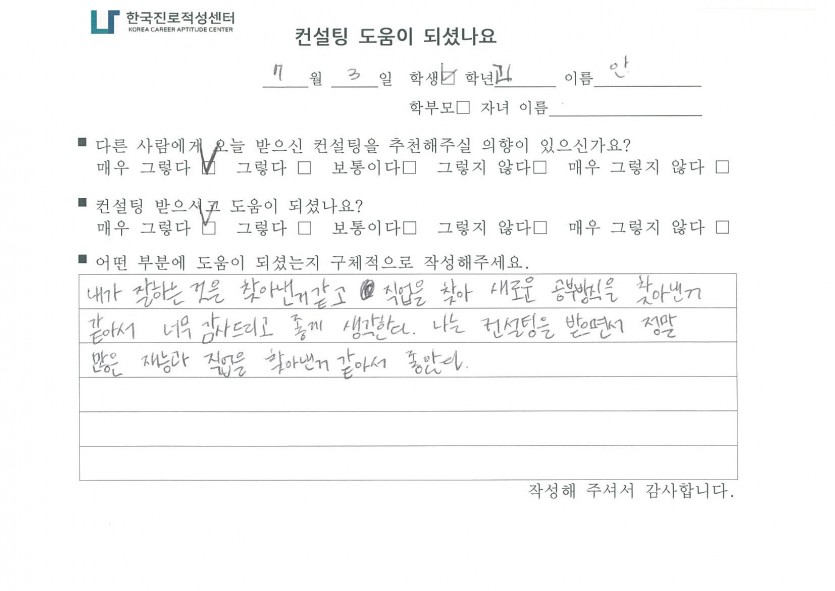 한국진로적성센터
KOREA CAREER APTITUDE CENTER
컨설팅 도움이 되셨나요
7 월 3 일 학생☑ 학년 고1 이름 안
학부모□ 자녀 이름
■ 다른 사람에게 오늘 받으신 컨설팅을 추천해주실 의향이 있으신가요?
매우 그렇다 ☑ 그렇다 □ 보통이다□ 그렇지 않다□ 매우 그렇지 않다 □
■ 컨설팅 받으시고 도움이 되셨나요?
매우 그렇다 ☑ 그렇다 □ 보통이다□ 그렇지 않다□ 매우 그렇지 않다 □
■ 어떤 부분에 도움이 되셨는지 구체적으로 작성해주세요.
내가 잘하는 것을 찾아낸거같고 직업을 찾아 새로운 공부방식을 찾아낸거
같아서 너무 감사드리고 좋게 생각한다. 나는 컨설팅을 받으면서 정말
많은 재능과 직업을 찾아낸거 같아서 좋았다.
작성해 주셔서 감사합니다.